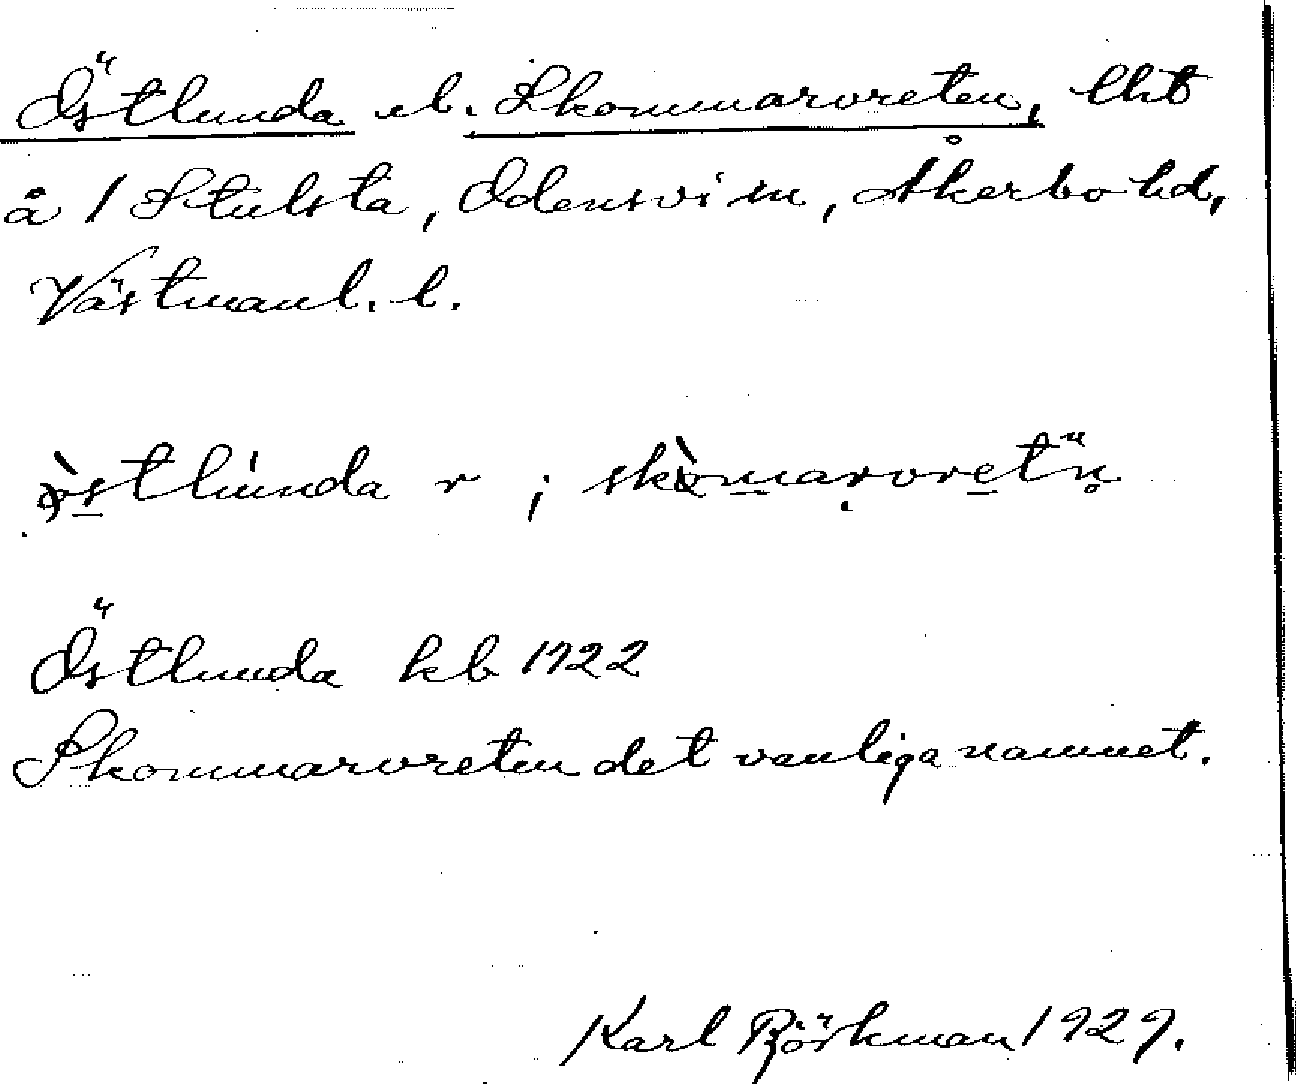 Östlunda el. Skommarvreten, lht
å 1 Stulsta, Odensvi sn, Åkerbo hd,
Västmanl. l.
òstlúnda r ; skòmarvretn̥
Östlunda kb 1722
Skommarvreten det vanliga namnet.
Karl Björkman 1929.